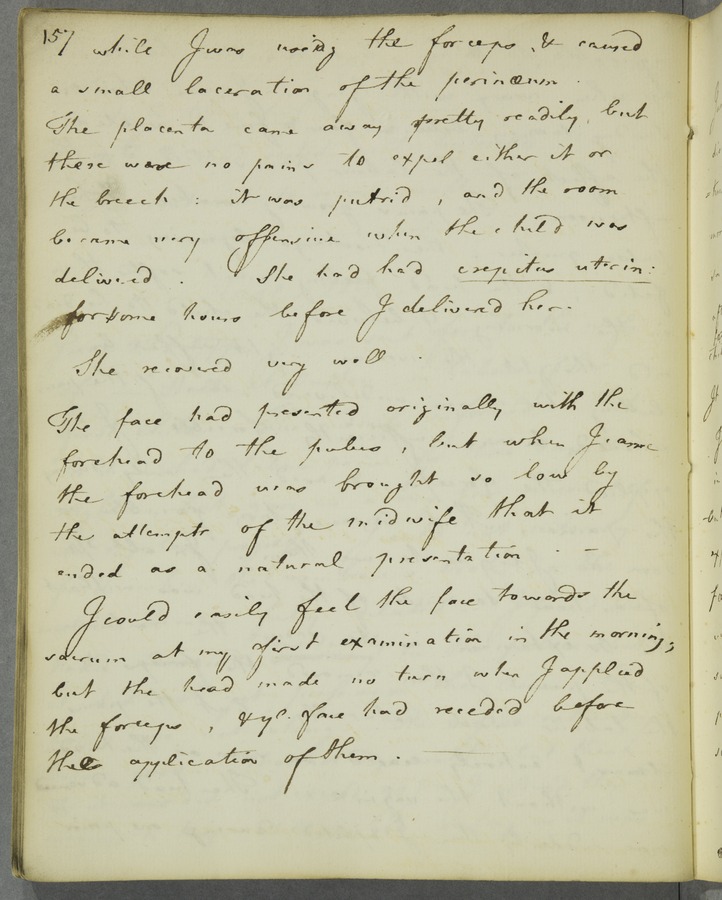 157
while I was using the forceps, & caused
a small laceration of the perinæum.
The placenta came away pretty readily, but
there were no pains to expel either it or
the breech: it was putrid, and the room
became very offensive when the child was
delivered. She had had crepitus uterin:
for some hours before I delivered her.
She recovered very well.
The face had presented originally with the
forehead to the pubes, but when I came
the forehead was brought so low by
the attempts of the midwife that it
ended as a natural presentation. -
I could easily feel the face towards the
sacrum at my first examination in the morning;
but the head made no turn when I applied
the forceps, & ye. face had receded before
the application of them.